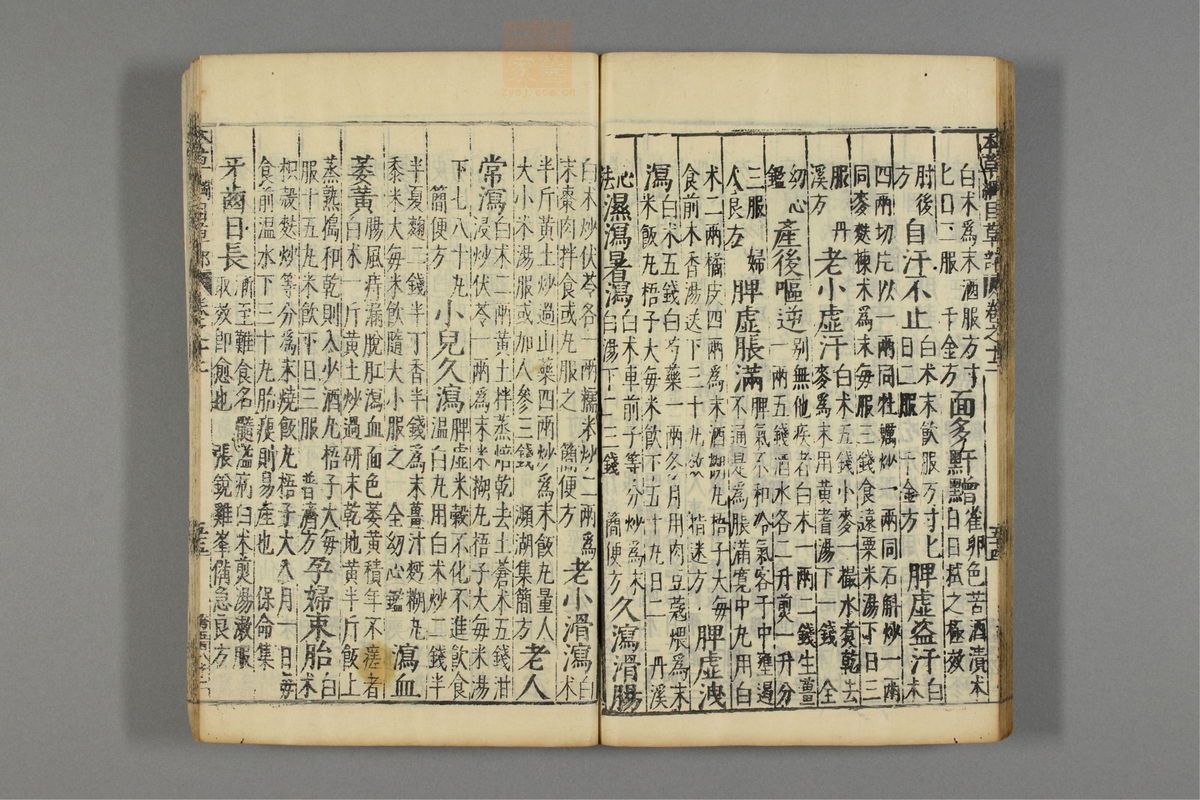 本草綱目草部 卷之十二 五十四
白朮為末酒服方寸匕日二服 千金方 面多䵟䵳雀卵色苦酒漬朮日日拭之極效
肘後方 自汗不止白朮末飲服方寸匕日二服 千金方 脾虛盜汗白朮
四兩切片以一兩同牡蠣炒一兩同石斛炒一兩
同麥麩揀朮為末每服三錢食遠粟米湯下日三
服 丹溪方 老小虛汗白朮五錢小麥一撮水煮乾去麥為末用黃耆湯下一錢 全
幼心鑑 產後嘔逆別無他疾者白朮一兩二錢生薑一兩五錢酒水各二升煎一升分
三服 婦人良方 脾虛脹滿脾氣不和冷氣客于中壅遏不通是為脹滿寬中丸用白
朮二兩橘皮四兩為末酒糊丸梧子大每
食前木香湯送下三十丸效 指迷方 脾虛洩
瀉白朮五錢白芍藥一兩冬月用肉豆蔻煨為末米飯丸梧子大每米飲下五十丸日二 丹溪
心法 濕瀉暑瀉白朮車前子等分炒為末白湯下二三錢 簡便方 久瀉滑腸
白朮炒伏苓各一兩糯米炒二兩為
末棗肉拌食或丸服之 簡便方 老小滑瀉白朮
半斤黃土炒過山藥四兩炒為末飯丸量人
大小米湯服或加人參三錢 瀕湖集簡方 老人
常瀉白朮二兩黃土拌蒸焙乾去土蒼朮五錢泔浸炒伏苓一兩為末米糊丸梧子大每米湯
下七八十丸 簡便方 小兒久瀉脾虛米穀不化不進飲食溫白丸用白朮炒二錢半
半夏麯二錢半丁香半錢為末薑汁麪糊丸
黍米大每米飲隨大小服之 全幼心鑑 瀉血
萎黃腸風痔漏脫肛瀉血面色萎黃積年不瘥者白朮一斤黃土炒過研末乾地黃半斤飯上
蒸熟搗和乾則入少酒丸梧子大每
服十五丸米飲下日三服 普濟方 孕婦束胎白朮
枳殼麩炒等分為末燒飯丸梧子大入月一日每
食前溫水下三十丸胎瘦則易產也 保命集
牙齒日長漸至難食名髓溢病白朮煎湯漱服取效即愈也 張銳雞峯備急良方
本草綱目草部 卷之十二 五十五